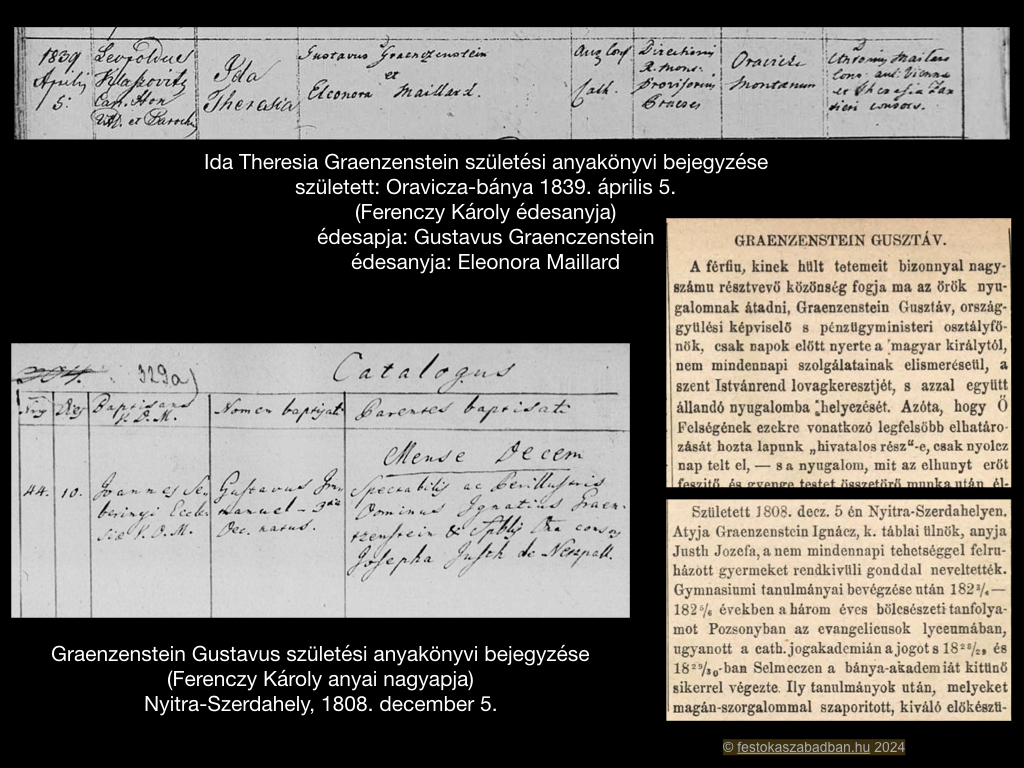 1839
Aprilis
5.
Leopoldus
Can. Hon
et Paroch
Ida
Theresia
Gustavus Graenczenstein
et
Eleonora Maillard.
Aug Conf
Cath.
Oravicza
Montanum
Ida Theresia Graenzenstein születési anyakönyvi bejegyzése
született: Oravicza-bánya 1839. április 5.
(Ferenczy Károly édesanyja)
édesapja: Gustavus Graenczenstein
édesanyja: Eleonora Maillard
GRAENZENSTEIN GUSZTÁV.
A férfiu, kinek hült tetemeit bizonnyal nagy-
számu résztvevő közönség fogja ma az örök nyu-
galomnak átadni, Graenzenstein Gusztáv, ország-
gyülési képviselő s pénzügyministeri osztályfő-
nök, csak napok előtt nyerte a magyar királytól,
nem mindennapi szolgálatainak elismeréseül, a
szent Istvánrend lovagkeresztjét, s azzal együtt
állandó nyugalomba helyezését. Azóta, hogy Ő
Felségének ezekre vonatkozó legfelsőbb elhatáro-
zását hozta lapunk „hivatalos rész“-e, csak nyolcz
nap telt el, — s a nyugalom, mit az elhunyt erőt
feszitő, és gyenge testet összetörő munka után él-
Született 1808. decz. 5 én Nyitra-Szerdahelyen.
Atyja Graenzenstein Ignácz, k. táblai ülnök, anyja
Justh Jozefa, a nem mindennapi tehetséggel felru-
házott gyermeket rendkivüli gonddal neveltették.
Gymnasiumi tanulmányai bevégzése után 182³/₄—
182⁵/₆ években a három éves bölcsészeti tanfolya-
mot Pozsonyban az evangelicusok lyceumában,
ugyanott a cath. jogakademián a jogot s 18²⁸/₂₉ és
18²⁹/₃₀-ban Selmeczen a bánya-akademiát kitünő
sikerrel végezte. Ily tanulmányok után, melyeket
magán-szorgalommal szaporitott, kiváló előkészü-
329a)
Catalogus
Nomen baptizati
Parentes baptisati
Mense Decem
44.
10.
Gustavus
Dec. natus.
Spectabilis ac Perillustris
Dominus Ignatius Graen-
tzenstein
Josepha Justh de Neczpall.
Graenzenstein Gustavus születési anyakönyvi bejegyzése
(Ferenczy Károly anyai nagyapja)
Nyitra-Szerdahely, 1808. december 5.
© festokaszabadban.hu 2024